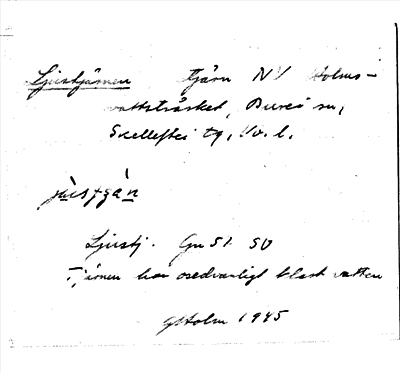 Ljustjärnen tjärn NV Holms-
vattsträsket, Bureå sn,
Skellefteå tg, Vb. l.
Ljustj. Gu 51 SO
Tjärnen har osedvanligt klart vatten
GHolm 1945